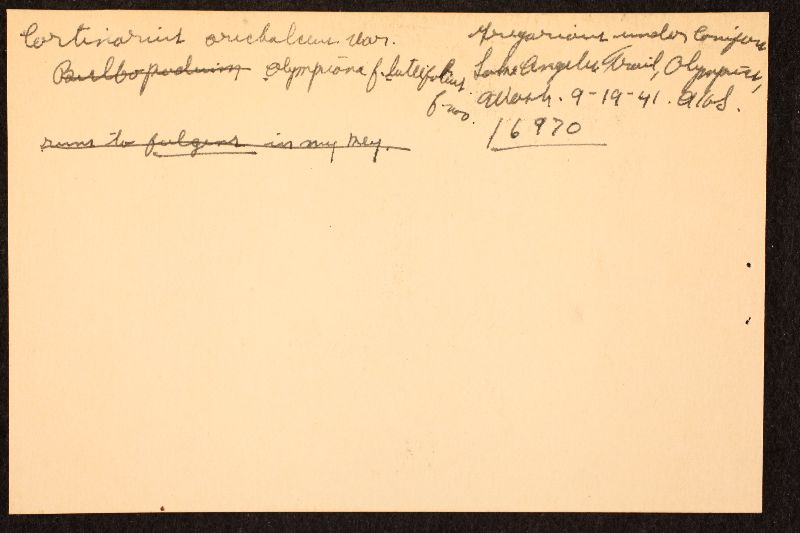 Cortinarius orichalceus var.
Bulbopodium olympiana f. luteifolius
f. no.
runs to fulgens in my key.
Gregarious under conifers
Lake Angeles Trail, Olympics,
Wash. 9-19-41. AHS.
16970